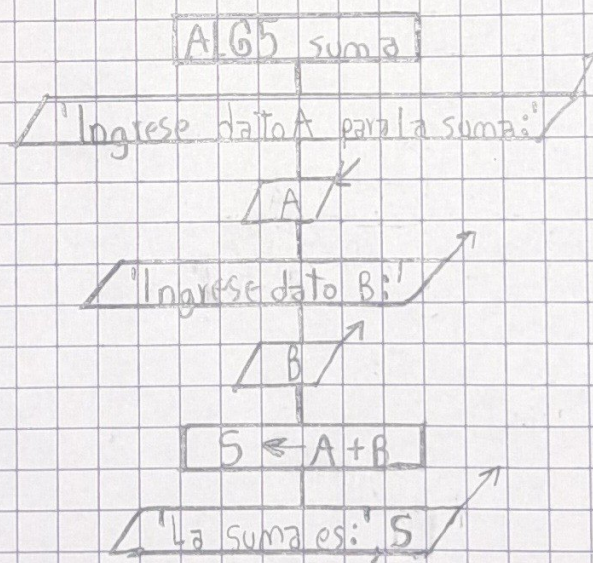 ALG5 suma
"Ingrese dato A para la suma:"
A
"Ingrese dato B:"
B
S ← A + B
"La suma es:", S